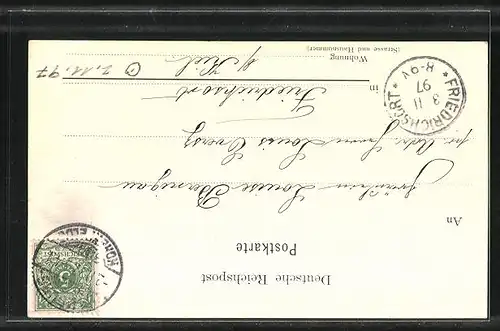 Deutsche Reichspost
Postkarte
An
Fräulein Louise
pr. Adr. Louis
in Friedrichsort
Wohnung
(Strasse und Hausnummer)
b/ Kiel
2.11.97
FRIEDRICHSORT
3 11
97
8-9V
REICHSPOST
5